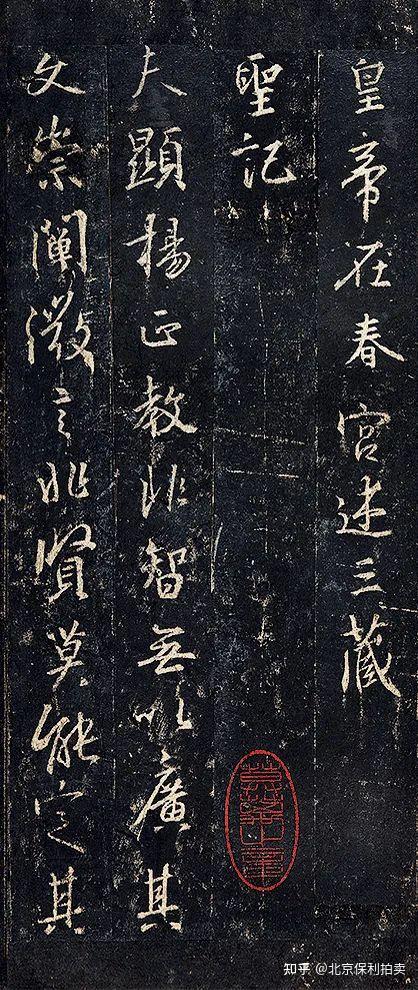 皇帝在春宫述三藏
聖記
夫顯揚正教非智無以廣其
文崇闡微言非賢莫能定其
知乎 @北京保利拍卖